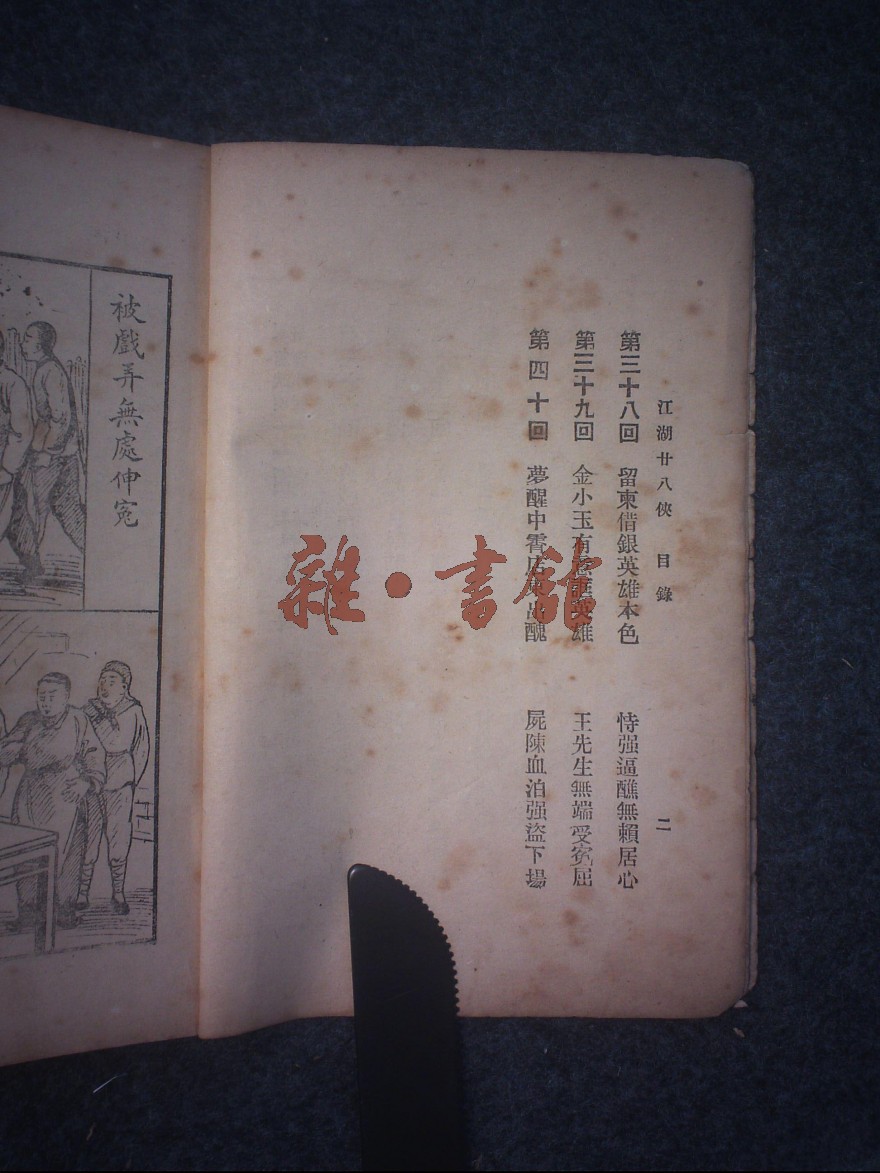 江湖廿八俠 目錄 二
第三十八回 留柬借銀英雄本色 恃强逼醮無賴居心
第三十九回 金小玉有 英雄 王先生無端受寃屈
第四十回 夢醒中霄店 醜 屍陳血泊强盜下場
被戲弄無處伸寃
雜·書館